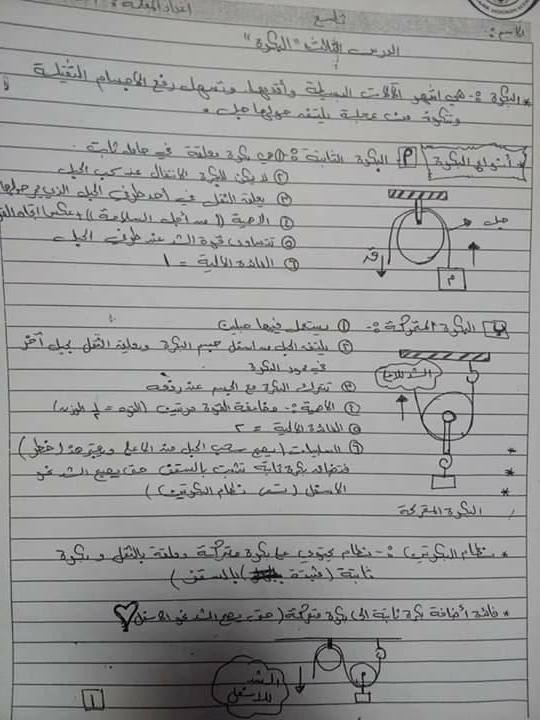 الاسم :-
تاسع
اعداد المعلمة :
الدرس الثالث "البكرة"
* البكرة :- هي اشهر الآلات البسيطة وأقدمها وتسهل رفع الأجسام الثقيلة
وتتكون من عجلة يلتف حولها حبل .
* أنواع البكرة
أ البكرة الثابتة :- ① هي بكرة معلقة في حامل ثابت
② لا يمكن للبكرة الانتقال عند سحب الحبل
③ يعلق الثقل في أحد طرفي الحبل الذي يمر حولها
④ الاهمية (( من أجل السلامة )) وعكس اتجاه القوة
⑤ تتساوى قوة الشد عند طرفي الحبل
⑥ الفائدة الآلية = ١
حبل
قر
م
ب البكرة المتحركة :- ① يستعمل فيها حبلين
② يلتف الحبل من اسفل جسم البكرة ويعلق الثقل بحبل آخر
في محور البكرة
③ تتحرك البكرة مع الجسم عند رفعه
④ الاهمية :- مضاعفة القوة مرتين (القوة = ½ الوزن)
⑤ الفائدة الآلية = ٢
⑥ السلبيات (يصبح سحب الحبل من الأعلى ويعتبر هذا خطر)
فتضاف بكرة ثابتة تثبت بالسقف حتى يصبح الشد نحو
الأسفل (تسمى نظام البكرتين)
الشد للأعلى
البكرة المتحركة
* نظام البكرتين :- نظام يحتوي على بكرة متحركة معلقة بالثقل و بكرة
ثابتة (مثبتة بالسقف)
* فائدة اضافة بكرة ثابتة الى بكرة متحركة (حتى يصبح الشد نحو الاسفل)
الشد
للاسفل
١